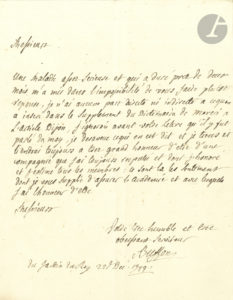 Messieurs
Une maladie assez serieuse et qui a duré pres de deux
mois m'a mis dans l'impossibilité de vous faire plutot
reponse, je n'ai aucune part directe ni indirecte a ce qu'on
a inseré dans le Supplement du Dictionaire de Moreri a
l'article Dijon, j'ignorois avant votre lettre qu'il y fut
parlé de moy, je desavoue ce qui en est dit et je tiens et
tiendrai toujours a tres grand honneur d'etre d'une
compagnie que j'ai toujours respectée et dont j'honore
et j'estime tous les membres, ce sont la les sentimens
dont je vous supplie d'assurer l'academie et avec lesquels
j'ai l'honneur d'etre
Messieurs
Votre tres humble et tres
obeissant Serviteur
Buffon
Du Jardin du Roy 22 Dec. 1749.